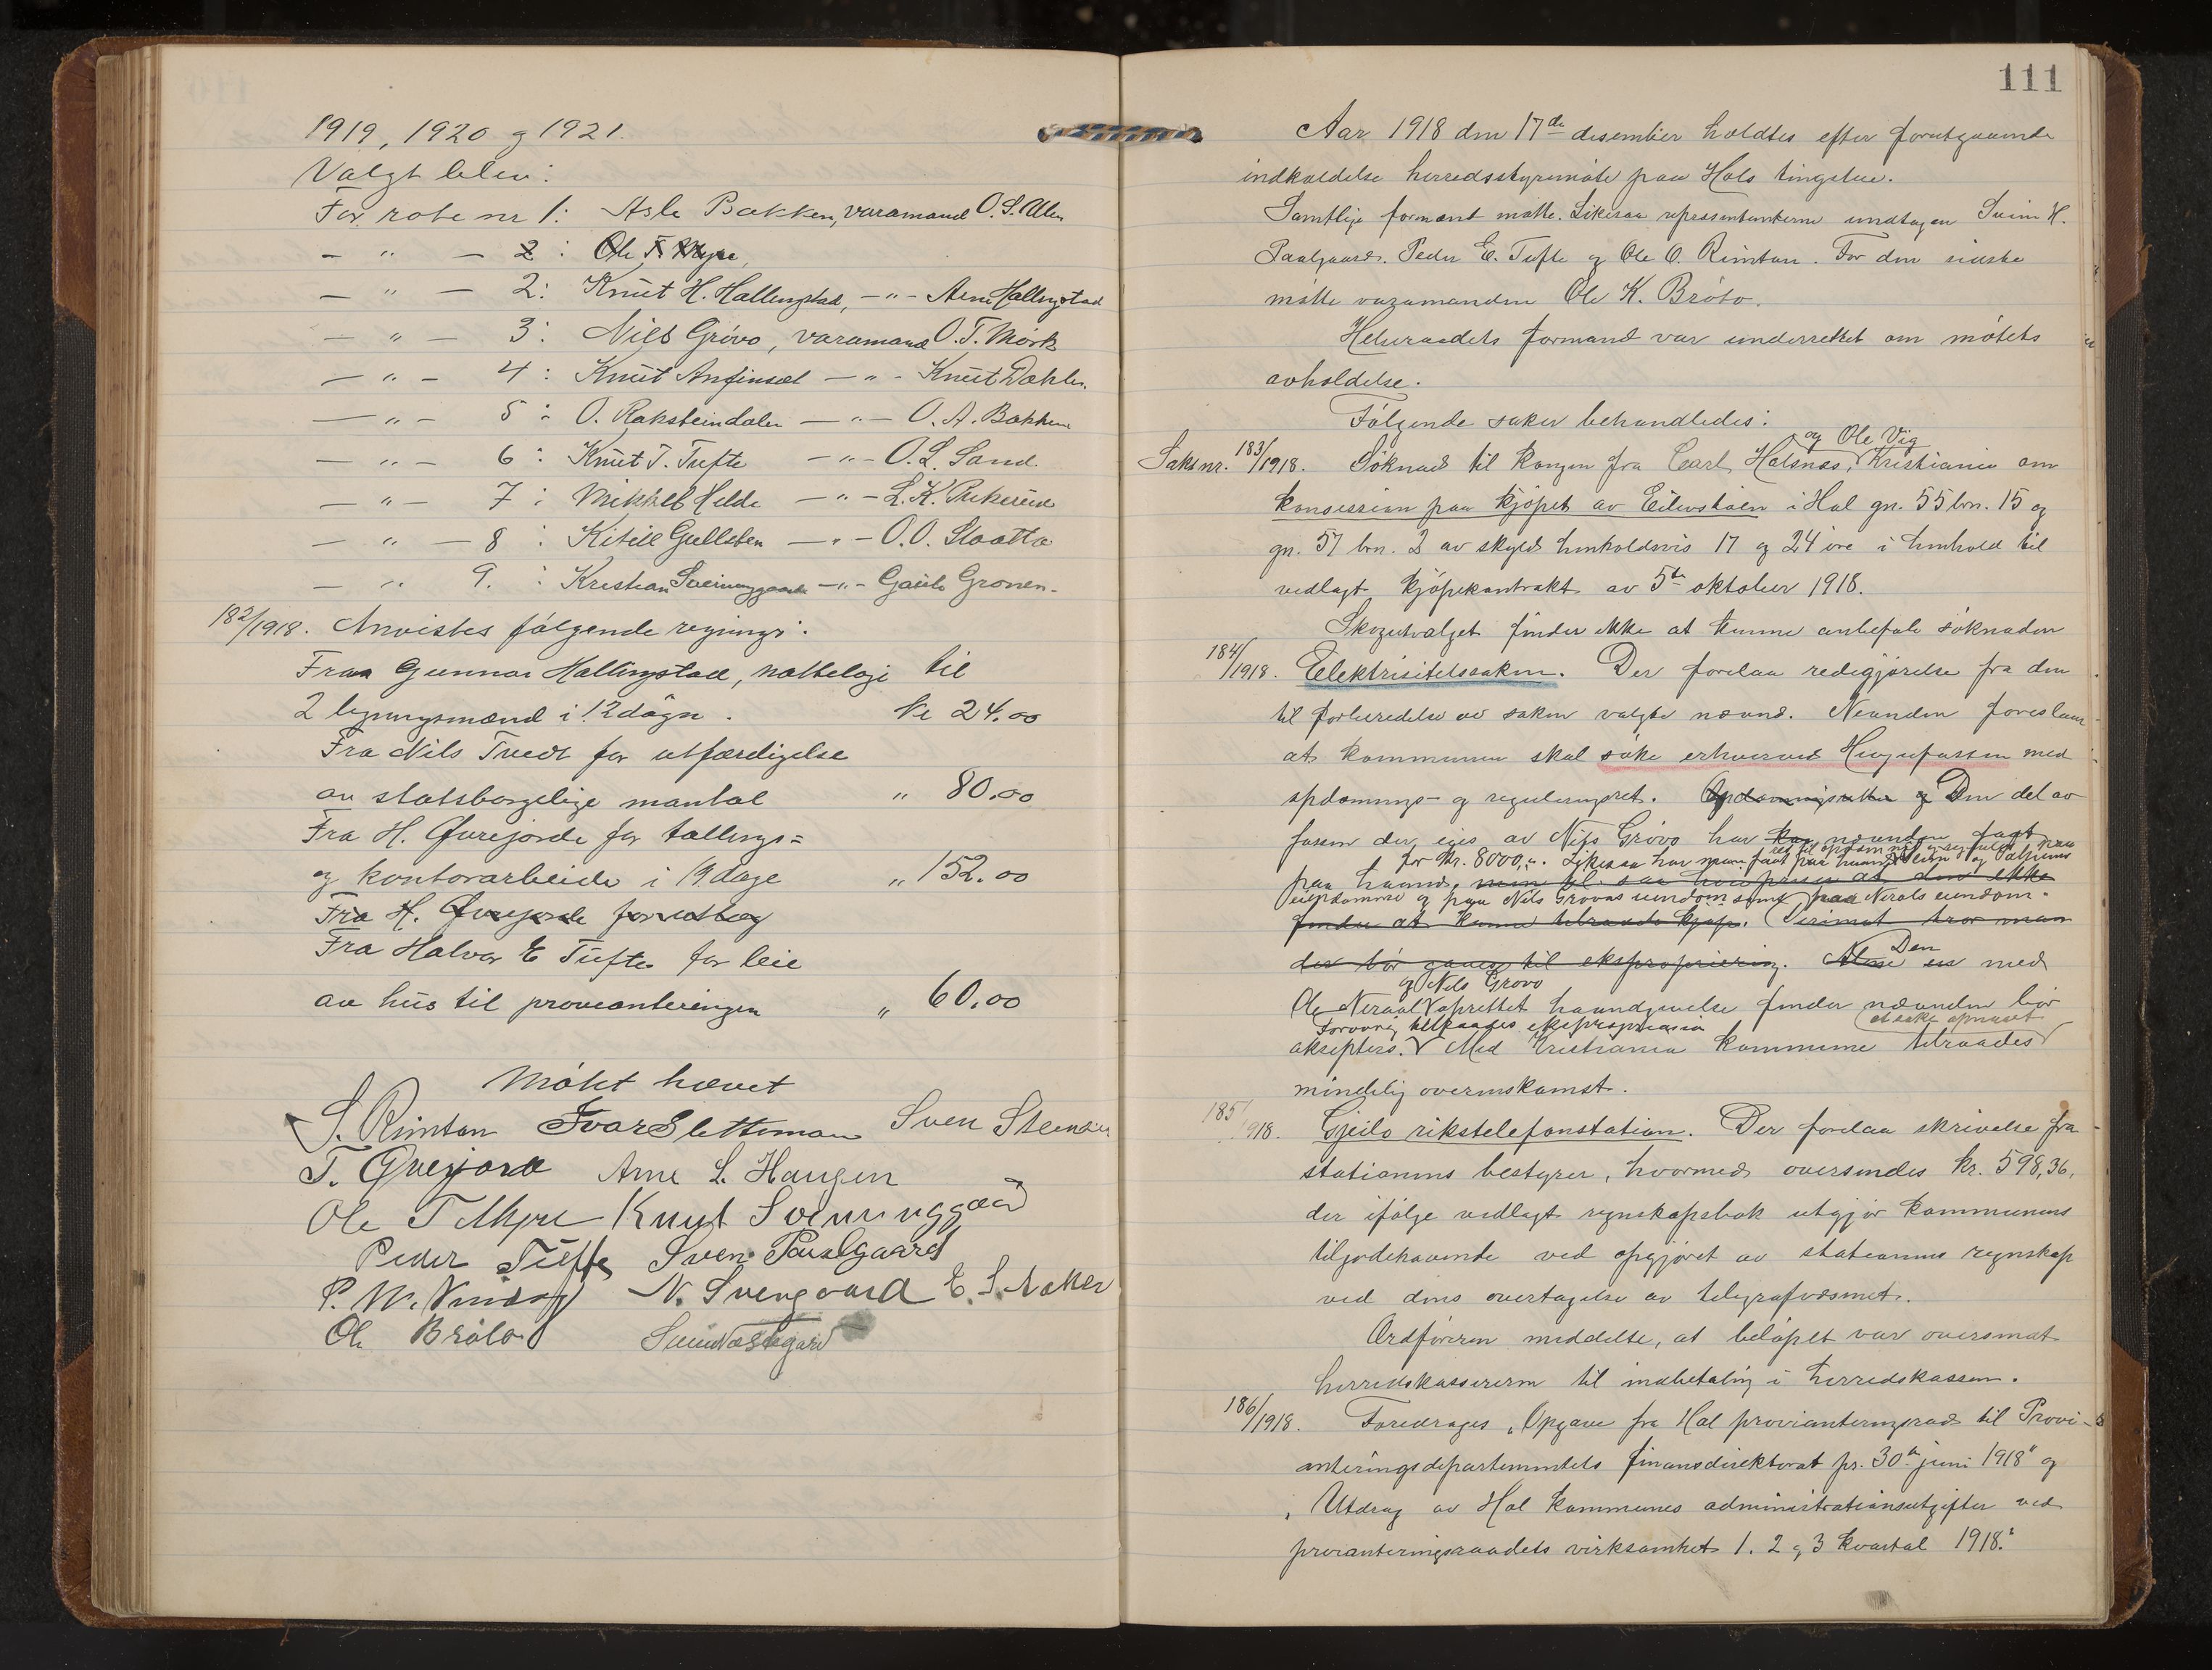 1919, 1920 og 1921.
Valgt blev:
For rote nr 1: Asle Bakken, varamand O. S. Alen
- " - 2: Ole T. Myre,
- " - 2: Knut H. Hallingstad, - " - Arne Hallingstad
- " - 3: Nils Grövo, varamand O. T. Mörk
- " - 4: Knut Anfinset - " - Knut Dokken.
- " - 5: O. Raksteindalen - " - O. A. Bakken
- " - 6: Knut T. Tufte - " - O. L. Sand.
- " - 7: Mikkel Helde - " - L. K.
- " - 8: Kitill Gullsten - " - O. O. Slaatto
- " 9.: Kristian Sveinunggaard - " - Gaute Gronen.
182/1918. Anvistes følgende regninger:
Fra Gunnar Hallingstad, natteloge til
2 legningsmænd i 12 døgn. Kr 24.00
Fra Nils Tvedt for utfærdigelse
av statsborgelige mantal " 80.00
Fra H. Qvrejorde for tællings=
og kontorarbeide i 19 dage " 152.00
Fra H. Qvrejorde for utlæg
Fra Halvor E Tufte for leie
av hus til provianteringen " 60.00
Møtet hævet
S. Rimton Ivar Slettemoen Sven Stensen
T. Qvrejord Arne L. Haugen
Ole T Myre Knut Sveinunggaard
Peder Tufte Sven Paulgaard
P. M. N. Svengaard E. S. Bakken
Ole Bröto Svein Vestegard
111
Aar 1918 den 17de desember holdtes efter forutgaaende
indkaldelse herredsstyremøte paa Hols tingstue.
Samtlige formænd møtte. Likesaa repræsentanterne undtagen Svein H.
Paalgaard, Peder E. Tufte og Ole O. Rimton. For den sidste
møtte varamanden Ole K. Bröto.
Helseraadets formand var underrettet om møtets
avholdelse.
Følgende saker behandledes:
og Ole Vig
Saksnr. 183/1918. Søknad til kongen fra Carl Holsnæs, Kristiania om
konsession paa kjøpet av Eilevstölen i Hol gn. 55 brn. 15 og
gn. 57 brn. 2 av skyld henholdsvis 17 og 24 øre i henhold til
vedlagt kjøpekontrakt av 5te oktober 1918.
Skogutvalget finder ikke at kunne anbefale søknaden
184/1918. Elektrisitetssaken. Der forelaa redegjørelse fra den
til forberedelse av saken valgte nævnd. Nevnden foreslaar
at kommunen skal søke erhvervet Hivjufossen med
opdæmnings- og reguleringsret. Opdæmningsretten og Den del av
fossen der eies av Nils Grövo har kan nævnden faat
for Kr. 8000,". Likesaa har man faat paa haand ret til opdæmning og regulering paa Veirn og Palgards
paa haand, men til saa høi pris at den ikke
eiendomme og paa Nils Grövos eiendom samt paa Nerols eiendom.
finder at kunne tilraade kjøp. Derimot tror man
der bør gaaes til ekspropriering. Den med
og Nils Grövo
Ole Neraal oprettet haandgivelse finder nævnden bør
Forøvrig tilraades ekspropriasion at søke opnaaet
aksepters. Med Kristiania kommune tilraades
mindelig overenskomst.
185/1918. Gjeilo rikstelefonstation. Der forelaa skrivelse fra
stationens bestyrer, hvormed oversendes kr. 598,36,
der ifølge vedlagt regnskapsbok utgjør kommunens
tilgodehavende ved opgjøret av stationens regnskap
ved dens overtagelse av telegrafvæsenet.
Ordføreren meddelte, at beløpet var oversendt
herredskassereren til indbetaling i herredskassen.
186/1918. Foredrages „Opgave fra Hol provianteringsraad til Provi-
anteringsdepartementets finansdirektorat pr. 30te juni 1918" og
„Utdrag av Hol kommunes administrationsutgifter ved
provianteringsraadets virksomhet 1. 2 og 3 kvartal 1918."